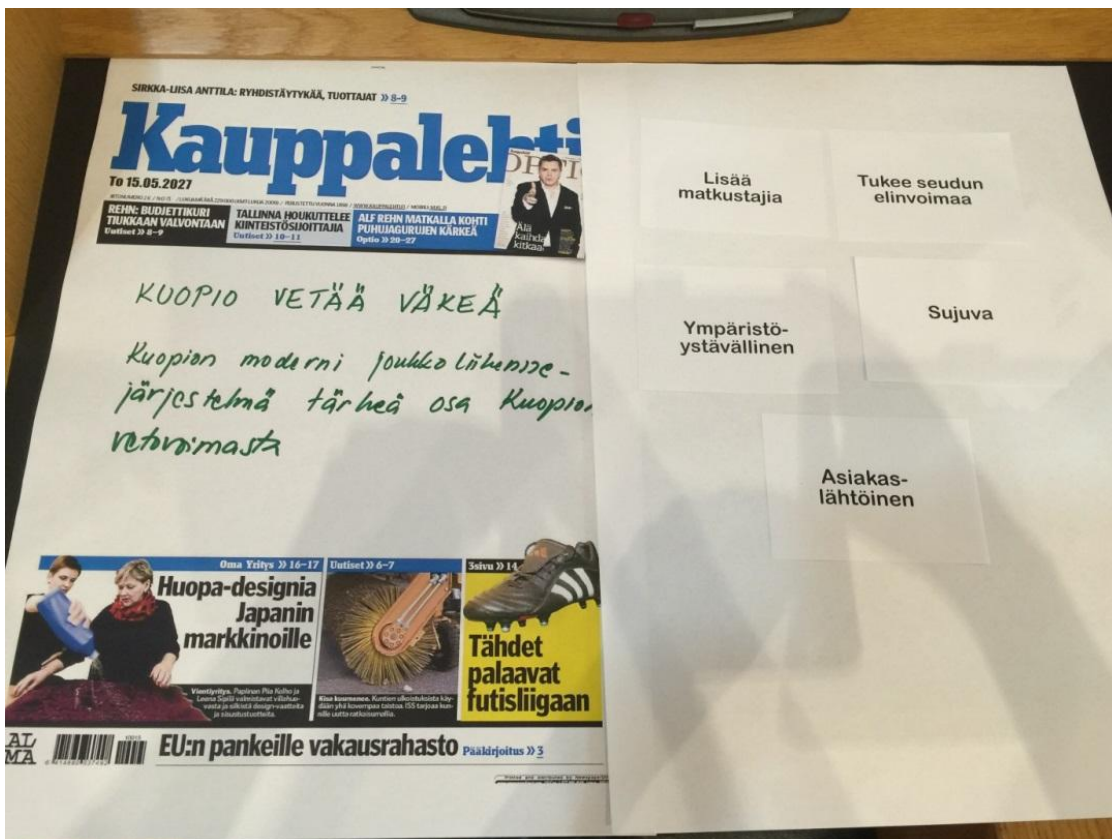 SIRKKA-LIISA ANTTILA: RYHDISTÄYTYKÄÄ, TUOTTAJAT » 8-9
Kauppalehti
OPTIO
To 15.05.2027
Älä
kaihda
kitkaa
REHN: BUDJETTIKURI
TIUKKAAN VALVONTAAN
Uutiset » 8-9
TALLINNA HOUKUTTELEE
KIINTEISTÖSIJOITTAJIA
Uutiset » 10-11
ALF REHN MATKALLA KOHTI
PUHUJAGURUJEN KÄRKEÄ
Optio » 20-27
KUOPIO VETÄÄ VÄKEÄ
Kuopion moderni joukkoliikenne-
järjestelmä tärkeä osa Kuopion
vetovoimasta
Oma Yritys » 16-17
Huopa-designia
Japanin
markkinoille
Vientiyritys. Papiinan Piia Kolho ja
Leena Sipilä valmistavat villahuo-
vasta ja silkistä design-vaatteita
ja sisustustuotteita.
Uutiset » 6-7
Kisa kuumenee. Kuntien ulkoistuksista käy-
dään yhä kovempaa taistoa. ISS tarjoaa kun-
nille uutta ratkaisumallia.
3sivu » 14
Tähdet
palaavat
futisliigaan
ALMA
EU:n pankeille vakausrahasto Pääkirjoitus » 3
Lisää
matkustajia
Tukee seudun
elinvoimaa
Ympäristö-
ystävällinen
Sujuva
Asiakas-
lähtöinen